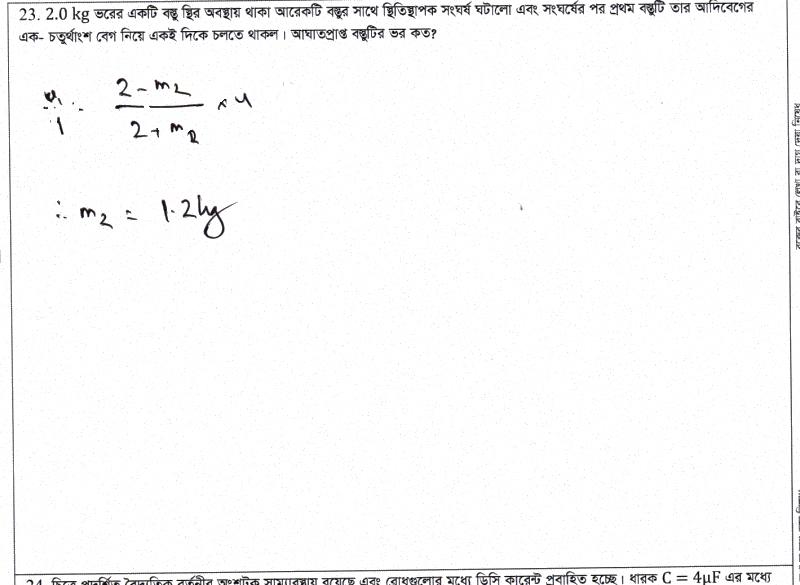 23. 2.0 kg ভরের একটি বস্তু স্থির অবস্থায় থাকা আরেকটি বস্তুর সাথে স্থিতিস্থাপক সংঘর্ষ ঘটালো এবং সংঘর্ষের পর প্রথম বস্তুটি তার আদিবেগের
এক- চতুর্থাংশ বেগ নিয়ে একই দিকে চলতে থাকল। আঘাতপ্রাপ্ত বস্তুটির ভর কত?
2 - m2
2 + m2
× u
∴ m2 = 1.2 kg
24. চিত্রে প্রদর্শিত বৈদ্যুতিক বর্তনীর অংশটুকু সাম্যাবস্থায় রয়েছে এবং রোধগুলোর মধ্যে ডিসি কারেন্ট প্রবাহিত হচ্ছে। ধারক C = 4μF এর মধ্যে